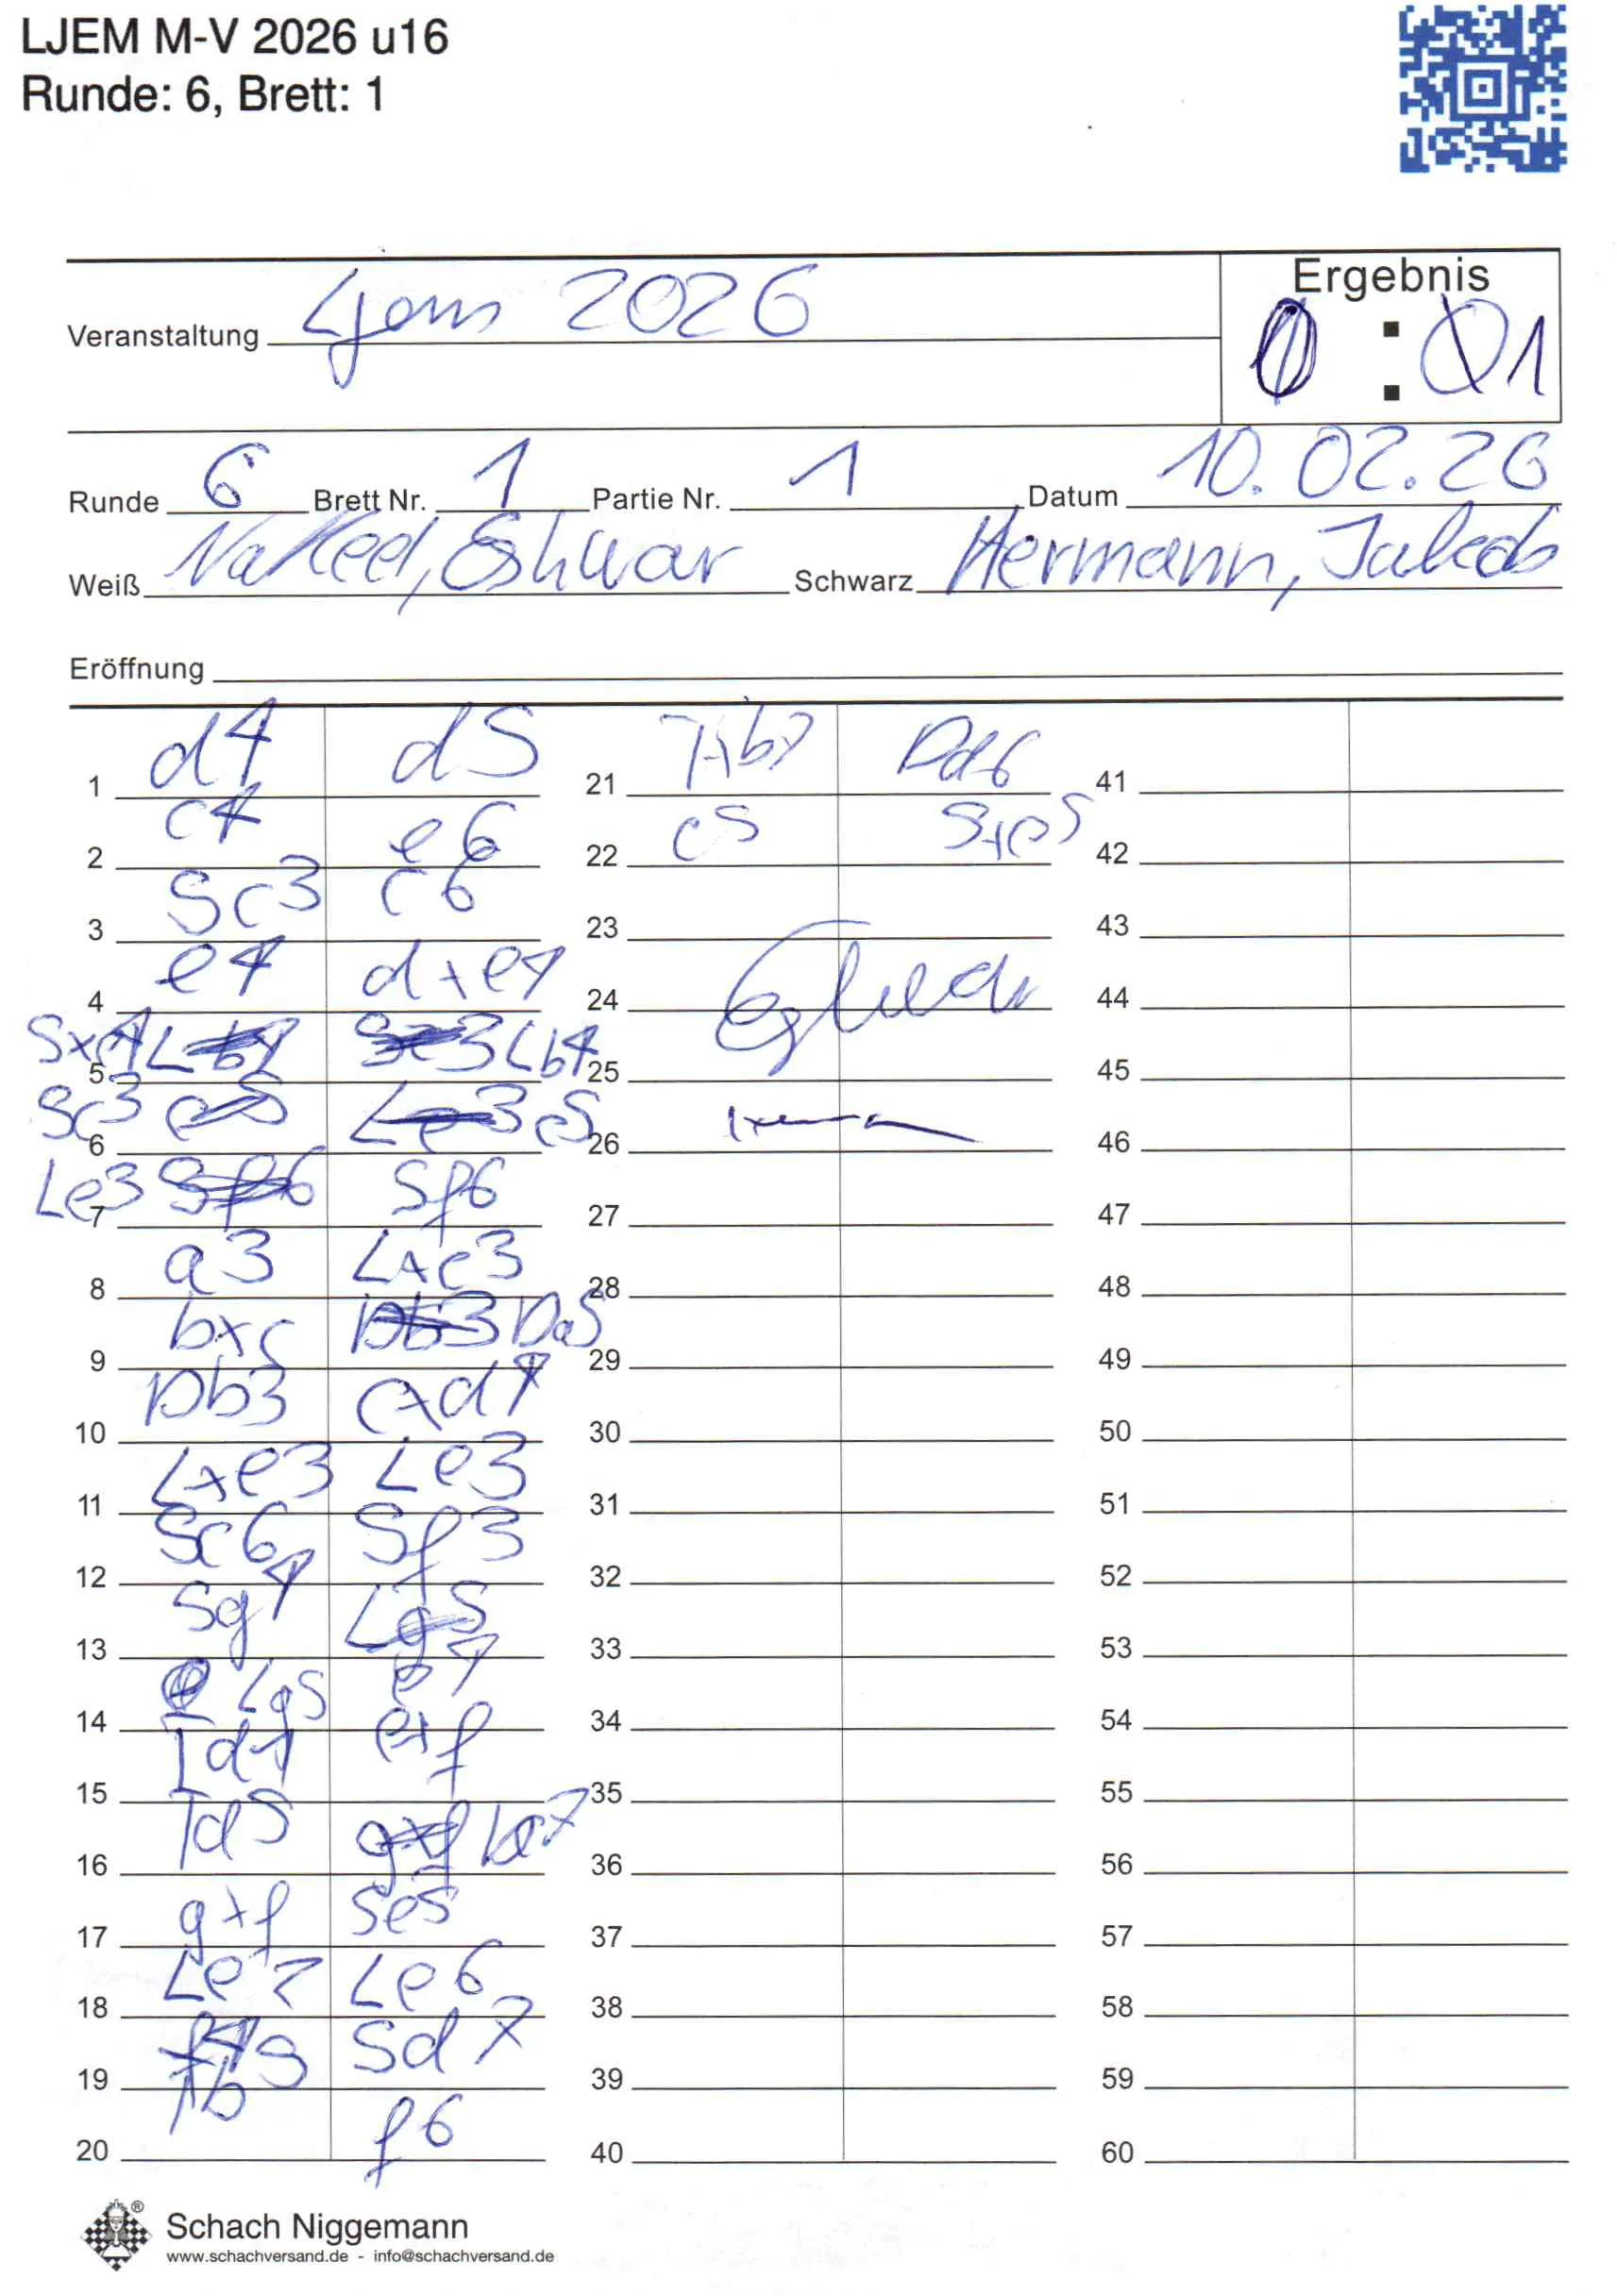 LJEM M-V 2026 u16
Runde: 6, Brett: 1
Ergebnis
Veranstaltung Ljem 2026
0 : 0 1
Runde 6 Brett Nr. 1 Partie Nr. 1 Datum 10.02.26
Weiß Eshwar Schwarz Hermann, Jakob
Eröffnung
1 d4 d5
2 c4 e6
3 Sc3 c6
4 e4 dxe4
5 Sxe4 Lb4
6 Sc3 c5
7 Le3 Sf6
8 a3 Lxc3
9 bxc Da5
10 Db3 cxd4
11 Lxe3 Le3
12 Sc6 Sf3
13 Sg4 Lg5
14 Lg5 e4
15 Td1 exf
16 Td5 Dc7
17 gxf Se5
18 Le2 Le6
19 Sd7
20 f6
21 Tb7 Dd6
22 c5 Sxc5
23
24
25
26
27
28
29
30
31
32
33
34
35
36
37
38
39
40
41
42
43
44
45
46
47
48
49
50
51
52
53
54
55
56
57
58
59
60
Schach Niggemann
www.schachversand.de - info@schachversand.de